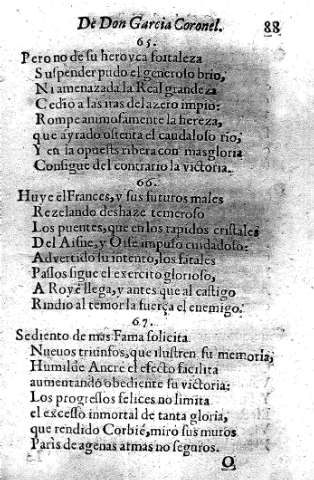 De Don Garcia Coronel. 88
65.
Pero no de su heroyca fortaleza
Suspender pudo el generoso brio,
Ni amenazada la Real grandeza
Cedio a las iras del azero impio:
Rompe animosamente la fiereza,
que ayrado ostenta el caudaloso rio,
Y en la opuesta ribera con mas gloria
Consigue del contrario la victoria.
66.
Huye el Frances, y sus futuros males
Rezelando deshaze temeroso
Los puentes, que en los rapidos cristales
Del Aisne, y Oise impuso cuidadoso:
Advertido su intento, los fatales
Passos sigue el exercito glorioso,
A Roye llega, y antes que al castigo
Rindiò al temor la fuerça el enemigo.
67.
Sediento de mas Fama solicita
Nueuos triunfos, que ilustren su memoria,
Humilde Ancre el efecto facilita
aumentando obediente su victoria:
Los progressos felices no limita
el excesso inmortal de tanta gloria,
que rendido Corbiè, mirò sus muros
Paris de agenas armas no seguros.
O